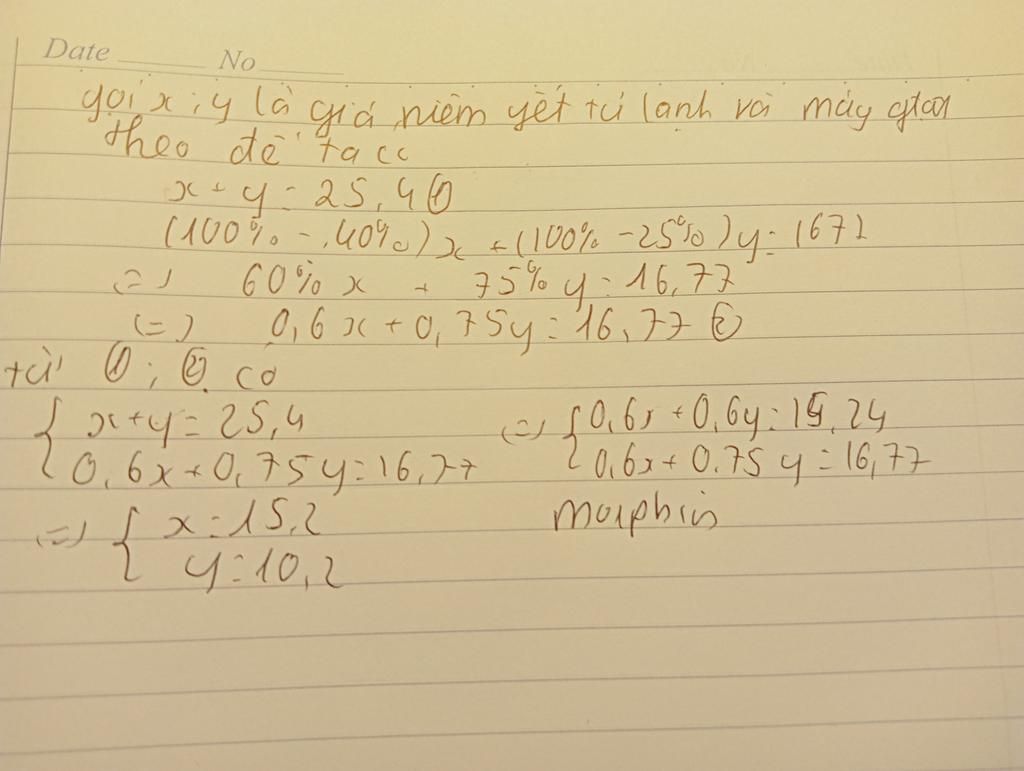 Date No
gọi x ; y là giá niêm yết tủ lạnh và máy giặt
theo đề ta cc
x + y = 25,4 ①
(100% - 40%)x + (100% - 25%)y = 1672
=) 60% x + 75% y = 16,77
(=) 0,6x + 0,75y = 16,77 ②
từ ① ; ② có
{ x+y = 25,4 (=) { 0,6x + 0,6y = 15,24
0,6x + 0,75y = 16,77 0,6x + 0.75y = 16,77
(=) { x = 15,2 morphin
y = 10,2